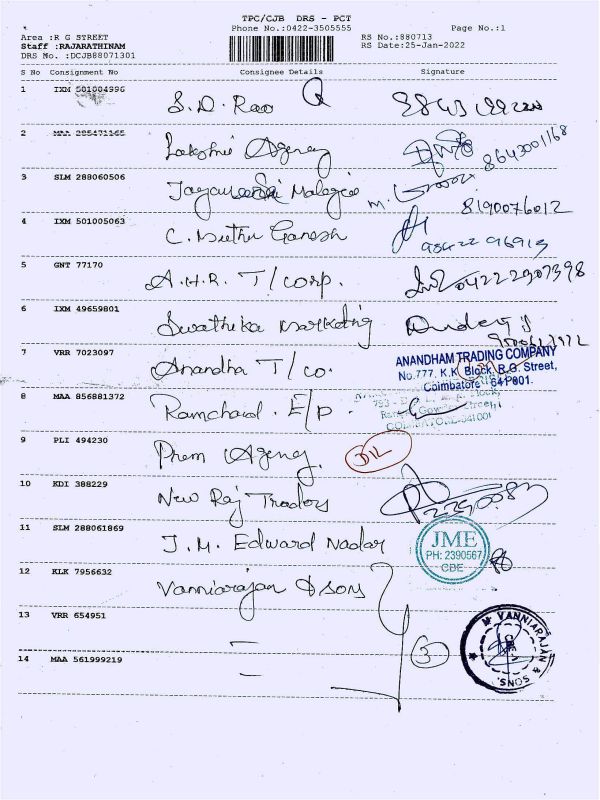 TPC/CJB DRS - PCT
Phone No.:0422-3505555 Page No.:1
Area :R G STREET RS No.:880713
Staff :RAJARATHINAM RS Date:25-Jan-2022
DRS No. :DCJB88071301
S No Consignment No Consignee Details Signature
1 IXM 501004996 S.D. Rao
2 MAA 285471165 Lakshmi Agency 8643001168
3 SLM 288060506 8190076012
4 IXM 501005063 C. Muthu Ganesh 98422 96913
5 GNT 77170 A.H.R. T/corp. 04222907398
6 IXM 49659801 Swathika Marketing
7 VRR 7023097 Anandha T/co.
ANANDHAM TRADING COMPANY
No.777, K.K. Block, R.G. Street,
Coimbatore - 641 001.
8 MAA 856881372 Ramchand. E/P.
COIMBATORE-641001
9 PLI 494230 Prem Agency.
10 KDI 388229 New Raj Traders
11 SLM 288061869 J.M. Edward Nadar
JME
PH: 2390567
CBE
12 KLK 7956632 Vanniarajan & sons
13 VRR 654951
3
M VANNIARAJAN & SONS.
CBE-1
14 MAA 561999219